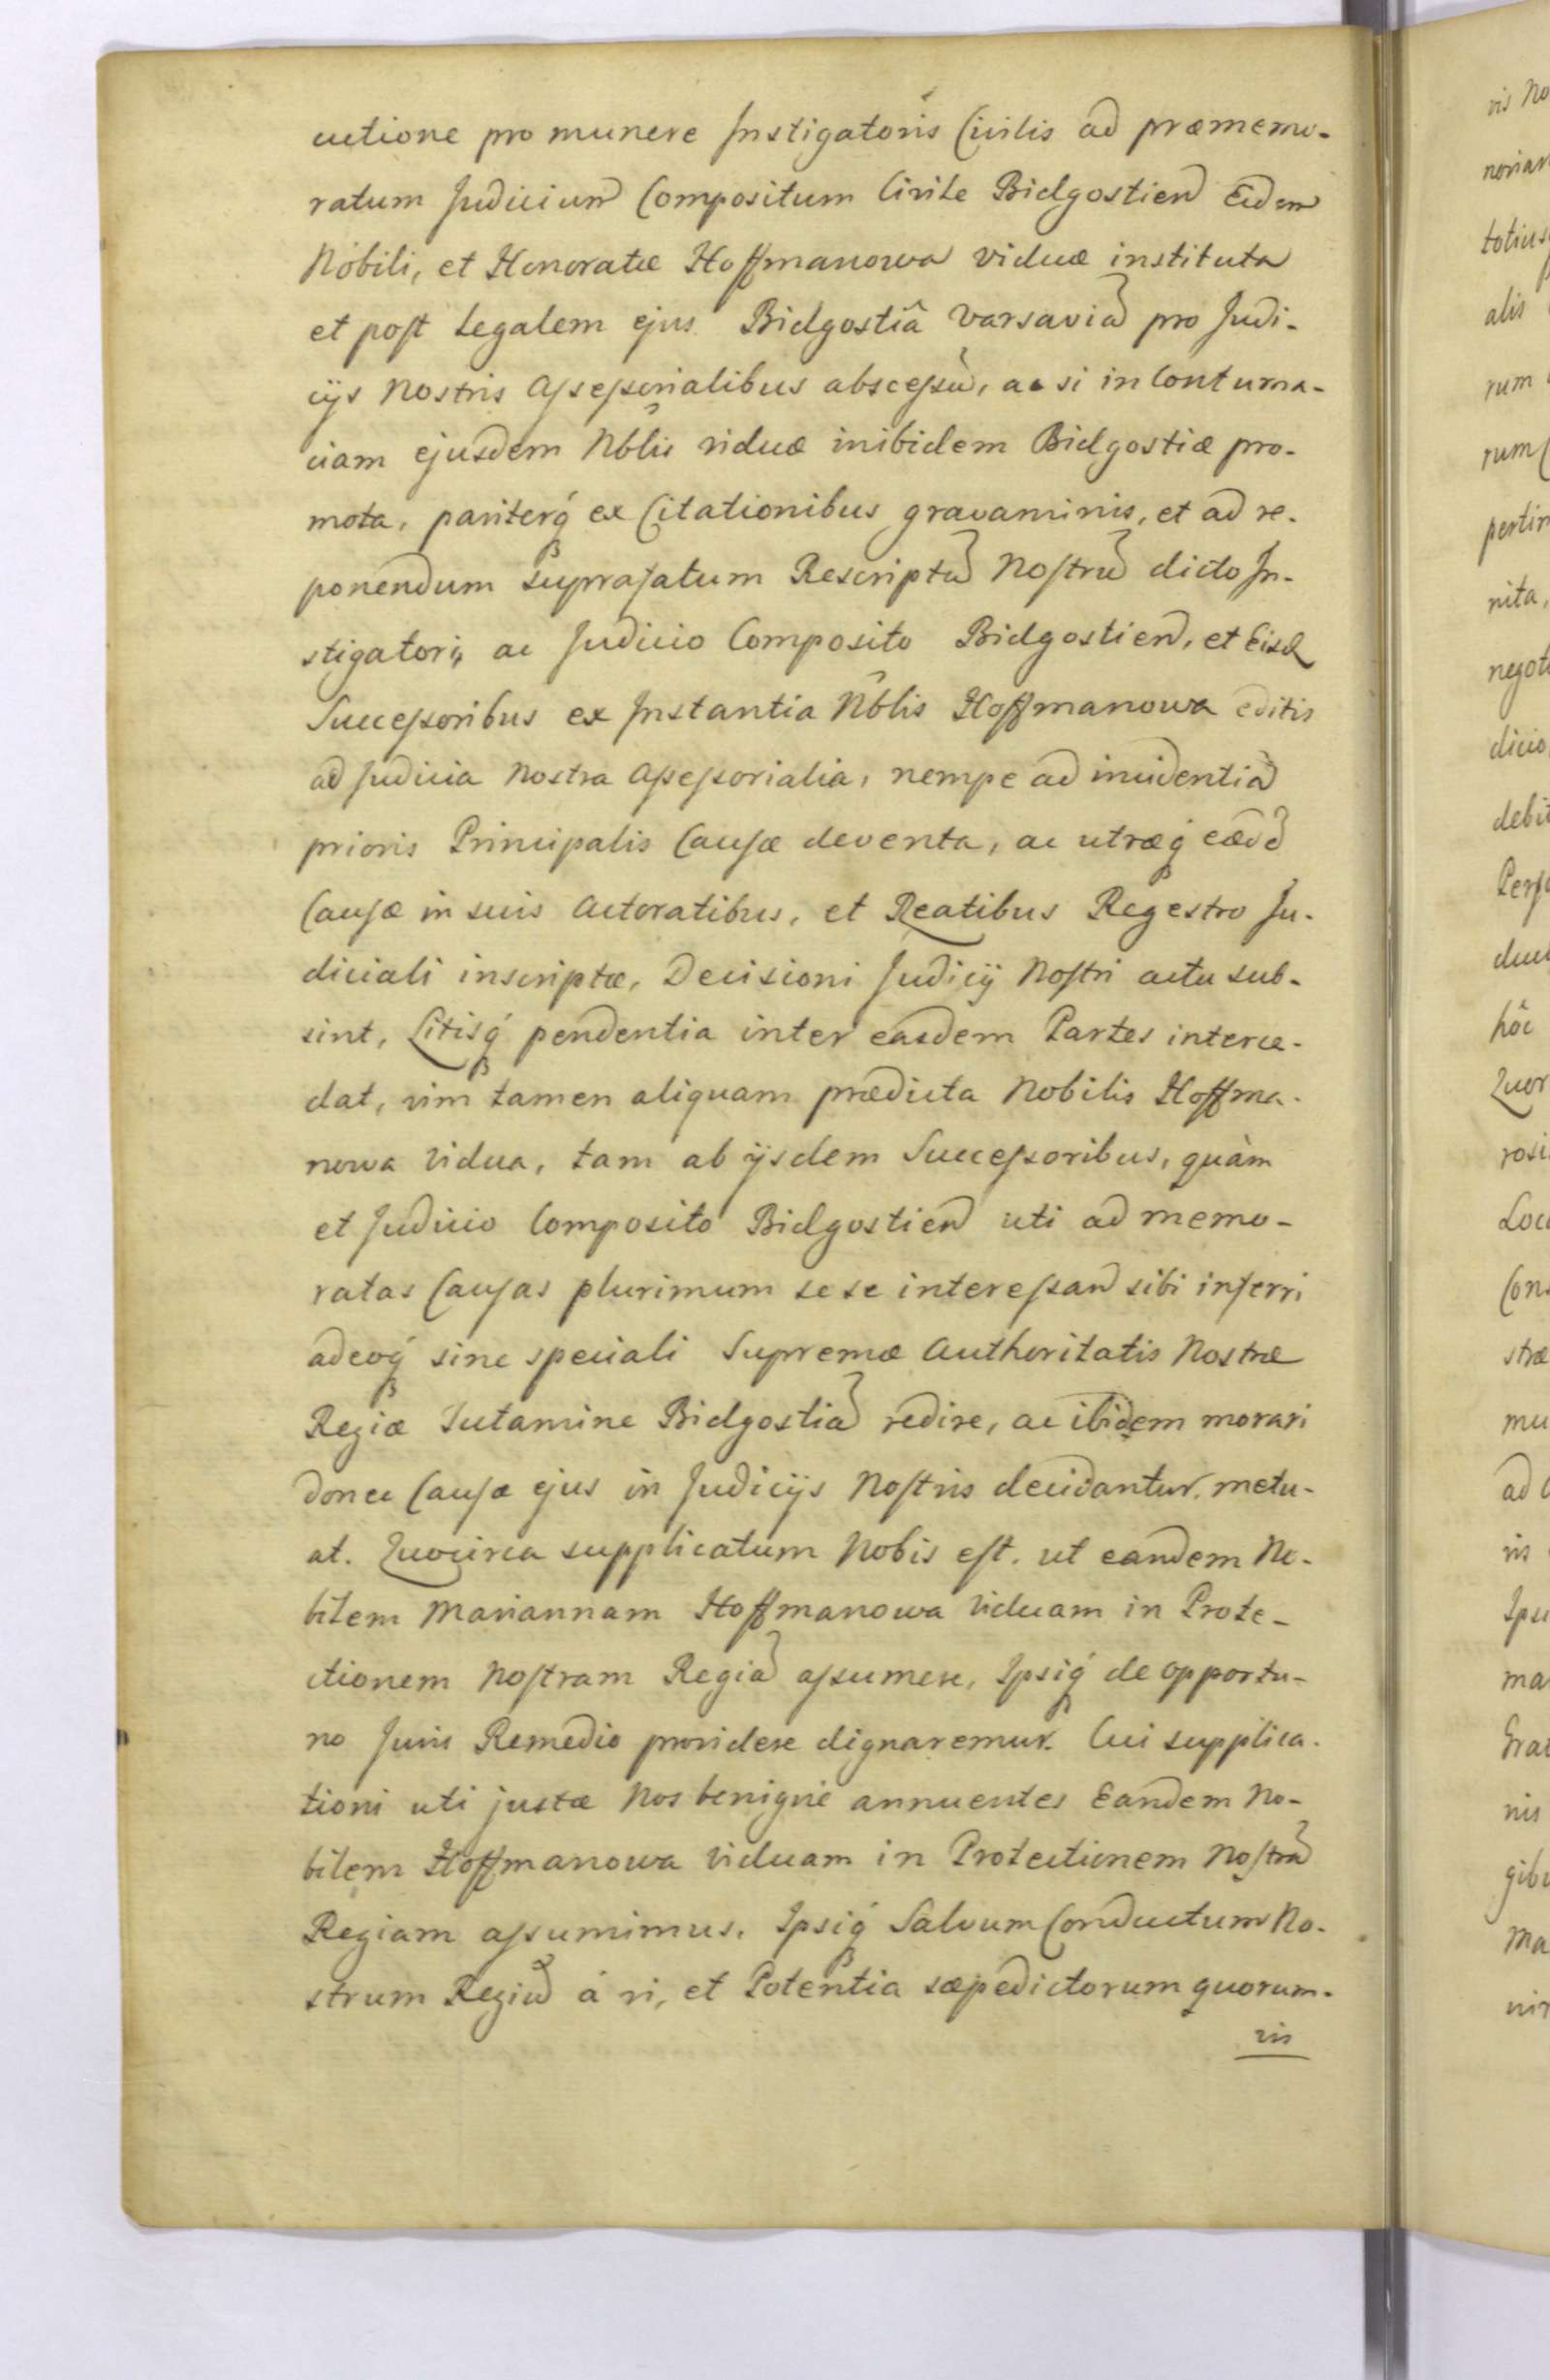 cutione pro munere Instigatoris Civilis ad præmemo-
ratum Judicium Compositum Civile Bidgostien Eidem
Nobili, et Honoratæ Hoffmanowa viduæ instituta
et post Legalem ejus Bidgostiâ Varsaviã pro Judi-
cijs Nostris Assessorialibus abscessu, ac si in Contuma-
ciam ejusdem Nblis viduæ inibidem Bidgostiæ pro-
mota, pariterq́ ex Citationibus gravaminis, et ad re-
ponendum suprafatum Rescriptũ Nostrũ dicto In-
stigatori, ac Judicio Composito Bidgostien, et Eisd
Successoribus ex Instantia Nblis Hoffmanowa editis
ad Judicia Nostra Assessorialia, nempe ad incidentiã
prioris Principalis Causæ deventa, ac utræq́ eæd
Causæ in suis Actoratibus, et Reatibus Regestro Ju-
diciali inscriptæ, Decisioni Judicij Nostri actu sub-
sint, Litisq́ pendentia inter easdem Partes interce-
dat, vim tamen aliquam prædicta Nobilis Hoffma-
nowa Vidua, tam ab ijsdem Successoribus, quàm
et Judicio Composito Bidgostien uti ad memo-
ratas Causas plurimum sese interessan sibi inferri
adeoq́ sine speciali Supremæ Authoritatis Nostræ
Regiæ Tutamine Bidgostiã redire, ac ibidem morari
donec Causæ ejus in Judicijs Nostris decidantur, metu-
at. Quocirca supplicatum Nobis est. ut eandem No-
bilem Mariannam Hoffmanowa Viduam in Prote-
ctionem Nostram Regiã assumere, Ipsiq́ de opportu-
no Juris Remedio providere dignaremur. Cui supplica-
tioni uti justæ Nos benigne annuentes Eandem No-
bilem Hoffmanowa Viduam in Protectionem Nostrã
Regiam assumimus, Ipsiq́ Salvum Conductum No-
strum Regiũ á vi, et Potentia sæpedictorum quorum-
vis
vis No
totius
alis
rum
rum
nita,
dicio
hôc
Quor
Con
stræ
mu
ad
ris
ma
nis
Ma